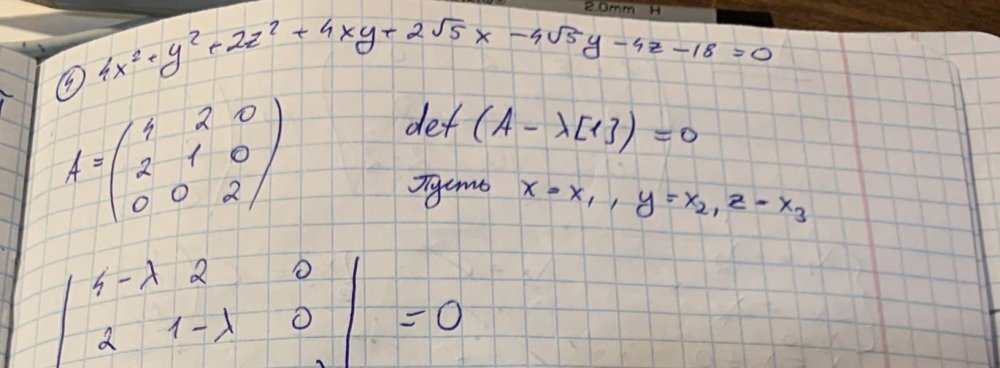 2.0mm H
④ 4x² + y² + 2z² + 4xy + 2√5x − 4√5y − 4z − 18 = 0
A = (4 2 0
2 1 0
0 0 2)
det (A − λ[1]) = 0
Пусть x = x₁, y = x₂, z = x₃
|4−λ 2 0
2 1−λ 0| = 0